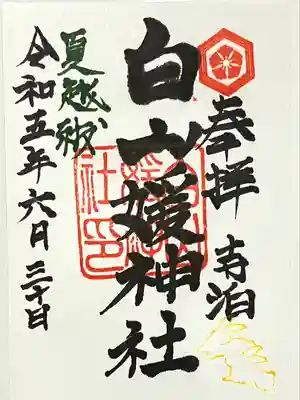 奉拝 寺泊
白山媛神社
夏越祓
令和五年六月三十日